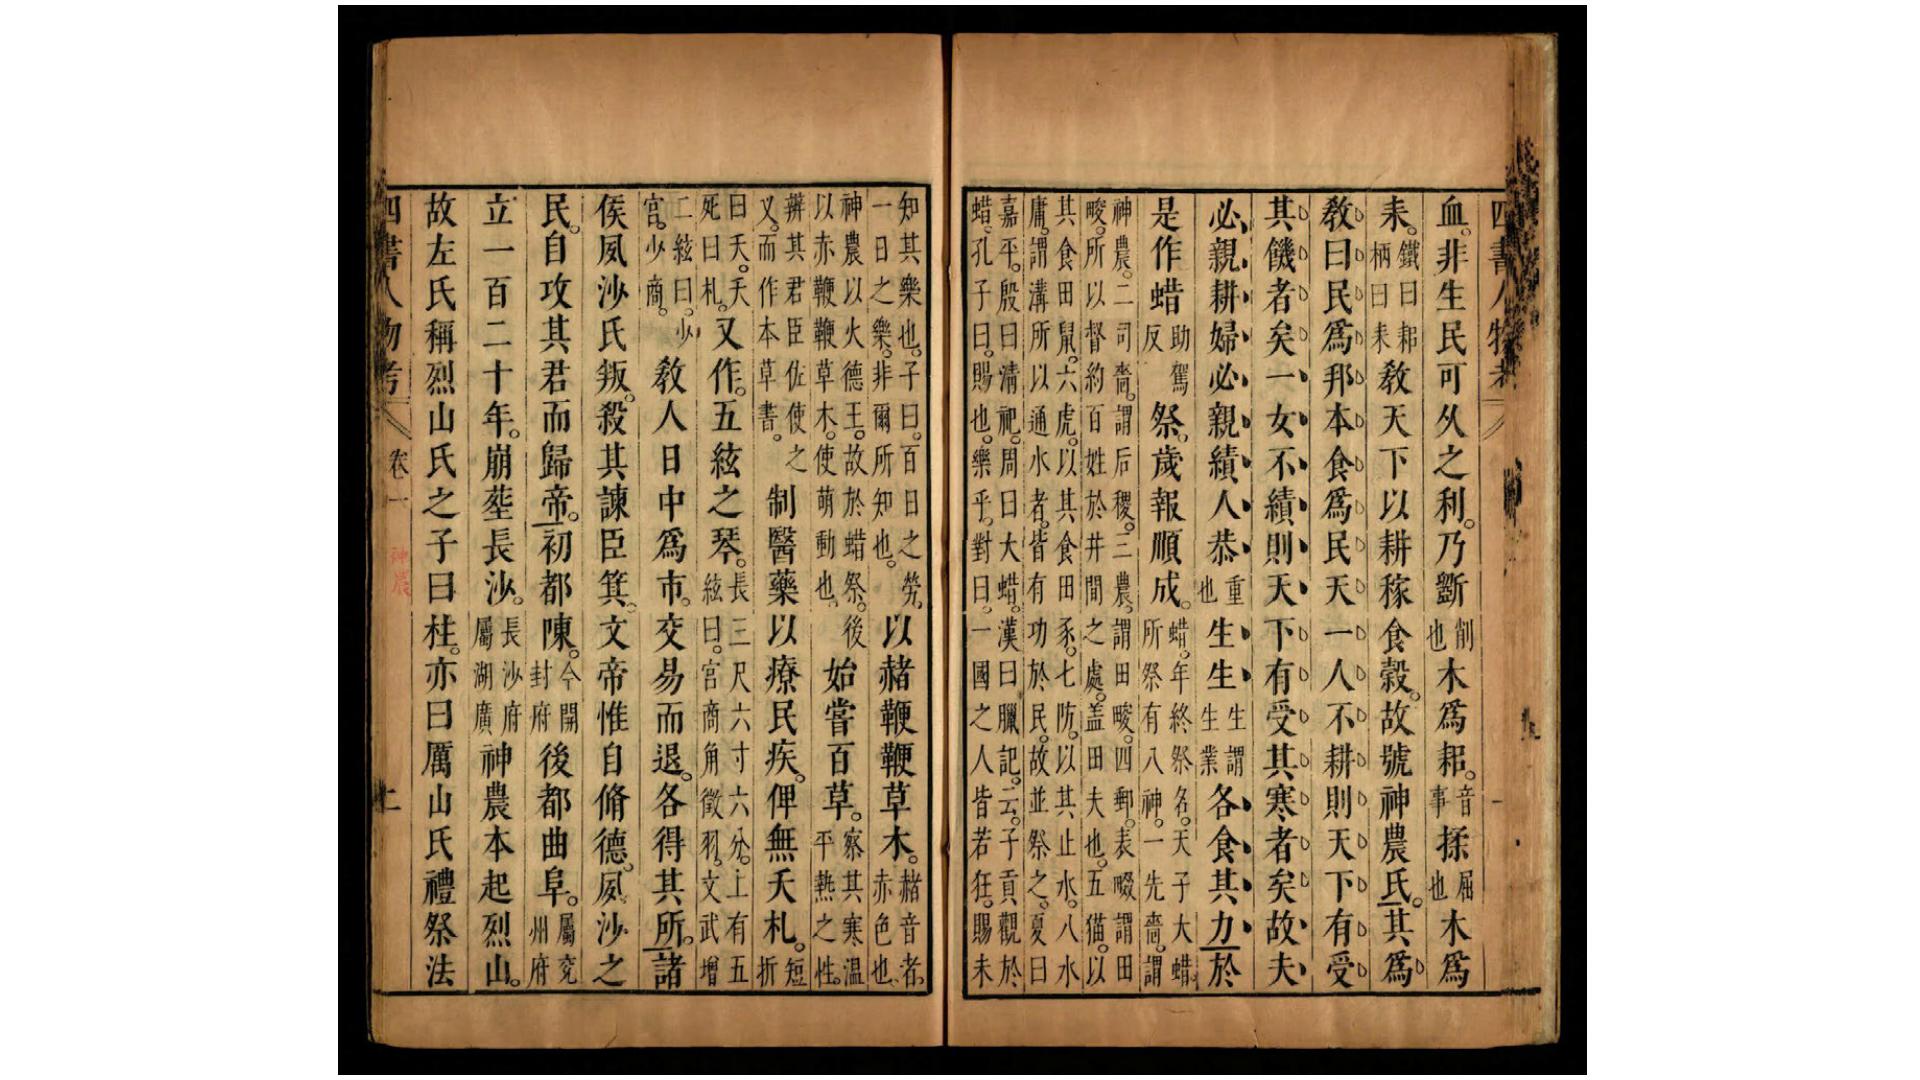 四書人物考
血。非生民可久之利。乃斵削也木為耜。音事揉屈也木為
耒。鐵曰耜柄曰耒教天下以耕稼食穀。故號神農氏。其為
教曰民為邦本食為民天一人不耕則天下有受
其饑者矣一女不績則天下有受其寒者矣故夫
必親耕婦必親績人恭重也生生生謂生業各食其力於
是作蜡助駕反祭。歲報順成。蜡。年終祭名。天子大蜡。所祭有八神。一先嗇。謂
神農。二司嗇。謂后稷。三農。謂田畯。四郵。表畷謂田
畯。所以督約百姓於井間之處。盖田夫也。五猫。以
其食田鼠。六虎。以其食田豕。七防。以其止水。八水
庸。謂溝所以通水者。皆有功於民。故並祭之。夏曰
嘉平。殷曰清祀。周曰大蜡。漢曰臘記。云。子貢觀於
蜡。孔子曰。賜也。樂乎。對曰。一國之人皆若狂。賜未
知其樂也。子曰。百日之勞。一日之樂。非爾所知也。以赭鞭鞭草木。赭音者。赤色也。
神農以火德王。故於蜡祭。後以赤鞭鞭草木。使萌動也。始嘗百草。察其寒溫。平熱之性。
辨其君臣佐使之义。而作本草書。制醫藥以療民疾。俾無夭札。短折
曰夭。夭死曰札。又作。五絃之琴。長三尺六寸六分。上有五絃曰。宮商角徵羽。文武增
二絃曰。少宮。少商。教人日中為市。交易而退。各得其所。諸
侯夙沙氏叛。殺其諫臣箕。文帝惟自脩德。夙沙之
民。自攻其君而歸帝。初都陳。今開封府後都曲阜。屬兗州府
立一百二十年。崩塟長沙。長沙府屬湖廣神農本起烈山。
故左氏稱烈山氏之子曰柱。亦曰厲山氏禮祭法
四書人物考 卷一 神農 二